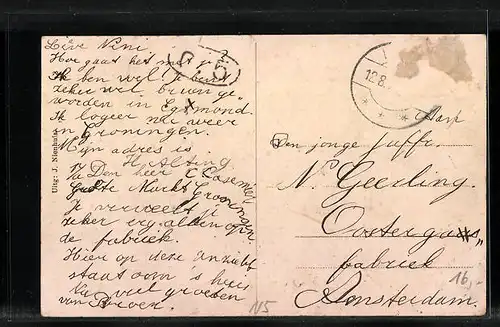 Lieve Nini
Hoe gaat het met je
Ik ben wel. Je bent
zeker wel bruin ge-
worden in Egmond.
Ik logeer nu weer
in Groningen.
Mijn adres is
H. Alting
Den heer C Casemier
Groote Markt Groningen.
Je verveelt je
zeker erg alleen op
de fabriek.
Hier op deze ansicht
staat oom's huis
veel groeten
van
Uitg: J. Nienhuis
12.8
Den jonge Juffr.
N. Geerling.
Oostergas„
fabriek
Amsterdam.
115
16,-